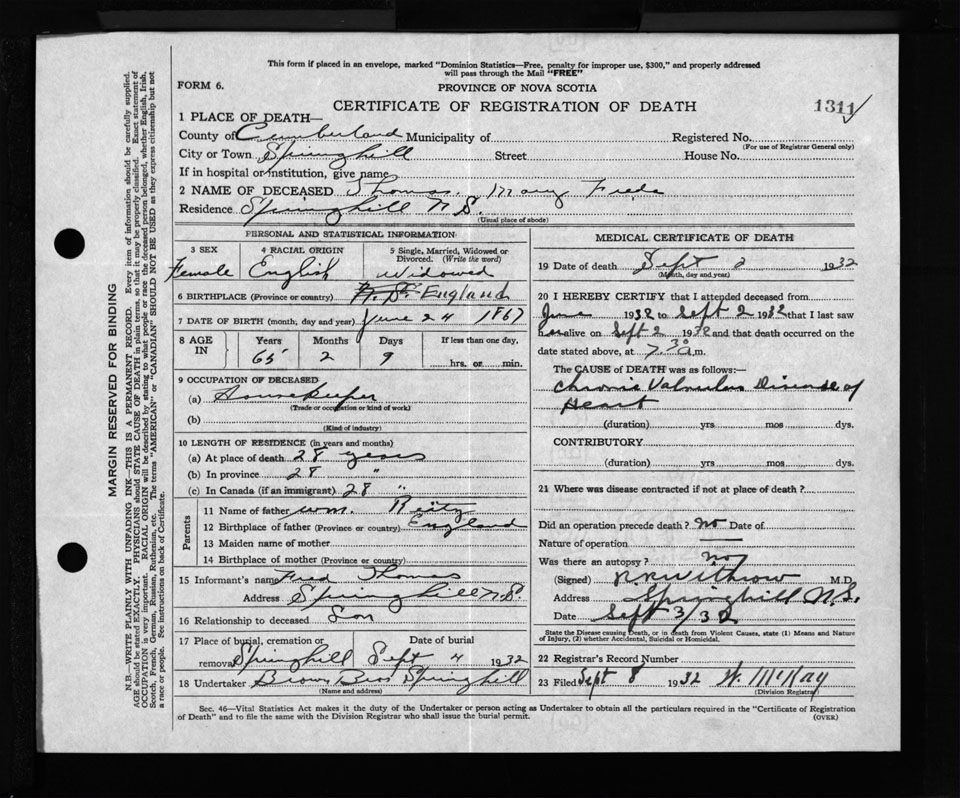 This form if placed in an envelope, marked "Dominion Statistics—Free, penalty for improper use, $300," and properly addressed
will pass through the Mail "FREE"
FORM 6.
PROVINCE OF NOVA SCOTIA
CERTIFICATE OF REGISTRATION OF DEATH
1311
1 PLACE OF DEATH—
County of Cumberland Municipality of Registered No.
(For use of Registrar General only)
City or Town Springhill Street House No.
If in hospital or institution, give name
2 NAME OF DECEASED Thomas. Mary
Residence Springhill N.S.
(Usual place of abode)
PERSONAL AND STATISTICAL INFORMATION
3 SEX 4 RACIAL ORIGIN 5 Single, Married, Widowed or Divorced. (Write the word)
Female English Widowed
6 BIRTHPLACE (Province or country) N.S. England
7 DATE OF BIRTH (month, day and year) June 24 1867
8 AGE IN Years Months Days If less than one day.
65 2 9 hrs. or min.
9 OCCUPATION OF DECEASED
(a) Housekeeper
(Trade or occupation or kind of work)
(b)
(Kind of industry)
10 LENGTH OF RESIDENCE (in years and months)
(a) At place of death 28 years
(b) In province 28 "
(c) In Canada (if an immigrant) 28 "
Parents
11 Name of father Wm.
12 Birthplace of father (Province or country) England
13 Maiden name of mother
14 Birthplace of mother (Province or country)
15 Informant's name Fred Thomas
Address Springhill N.S.
16 Relationship to deceased Son
17 Place of burial, cremation or removal Date of burial
Springhill Sept 4 1932
18 Undertaker Brown Bros Springhill
(Name and address)
MEDICAL CERTIFICATE OF DEATH
19 Date of death Sept 2 1932
(Month, day and year)
20 I HEREBY CERTIFY that I attended deceased from
June 1932 to Sept 2 1932 that I last saw
her alive on Sept 2 1932 and that death occurred on the
date stated above, at 7.30 a.m.
The CAUSE of DEATH was as follows:—
Chronic Valvular Disease of
Heart
(duration) yrs mos dys.
CONTRIBUTORY
(duration) yrs mos dys.
21 Where was disease contracted if not at place of death?
Did an operation precede death? No Date of
Nature of operation —
Was there an autopsy? No
(Signed) Withrow M.D.
Address Springhill N.S.
Date Sept 3/32
State the Disease causing Death, or in death from Violent Causes, state (1) Means and Nature
of Injury, (2) whether Accidental, Suicidal or Homicidal.
22 Registrar's Record Number
23 Filed Sept 8 1932 McKay
(Division Registrar)
Sec. 46—Vital Statistics Act makes it the duty of the Undertaker or person acting as Undertaker to obtain all the particulars required in the "Certificate of Registration
of Death" and to file the same with the Division Registrar who shall issue the burial permit.
(OVER)
MARGIN RESERVED FOR BINDING
N.B.—WRITE PLAINLY WITH UNFADING INK—THIS IS A PERMANENT RECORD. Every item of information should be carefully supplied.
AGE should be stated EXACTLY. PHYSICIANS should STATE CAUSE OF DEATH in plain terms, so that it may be properly classified. Exact statement of
OCCUPATION is very important. RACIAL ORIGIN will be described by stating to what people or race the deceased person belonged, whether English, Irish,
Scotch, French, German, Russian, Ruthenian, etc. The terms "AMERICAN" or "CANADIAN" SHOULD NOT BE USED as they express citizenship but not
a race or people. See instructions on back of Certificate.